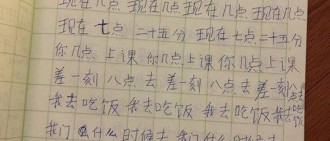 现在几点 现在几点 现在几点 现在几点
现在七点 二十五分 现在七点二十五分
你几点上课 你几点上课 你几点上课
差一刻八点去 差一刻八点去 差一刻
我去吃饭 我去吃饭 我去吃饭 我去吃饭
我们什么时候去 我们什么时候去